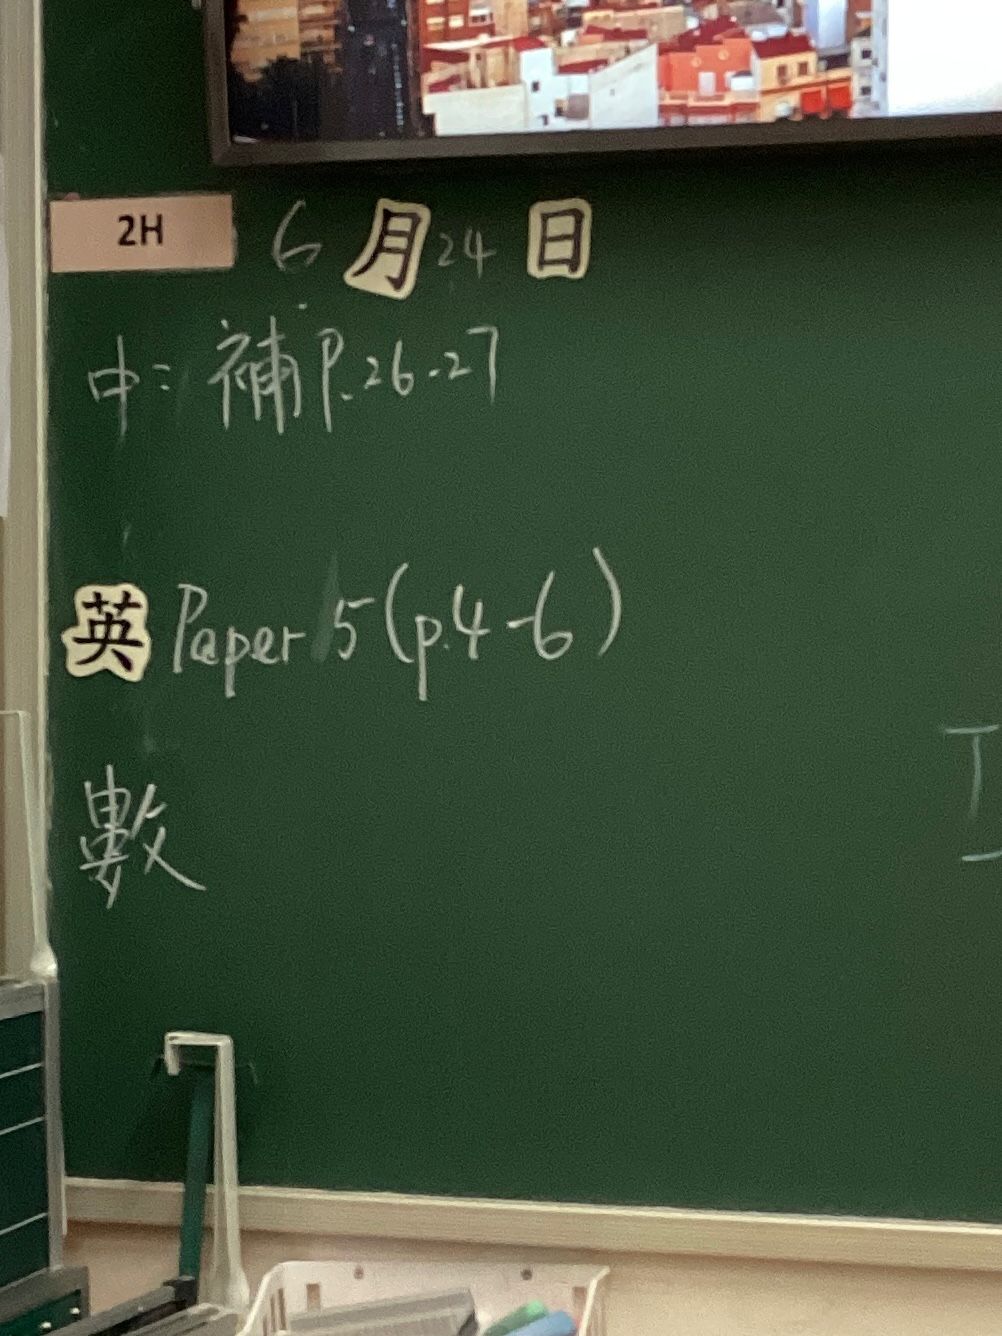 2H 6月24日
中: 補P.26-27
英 Paper 5(p.4-6)
數